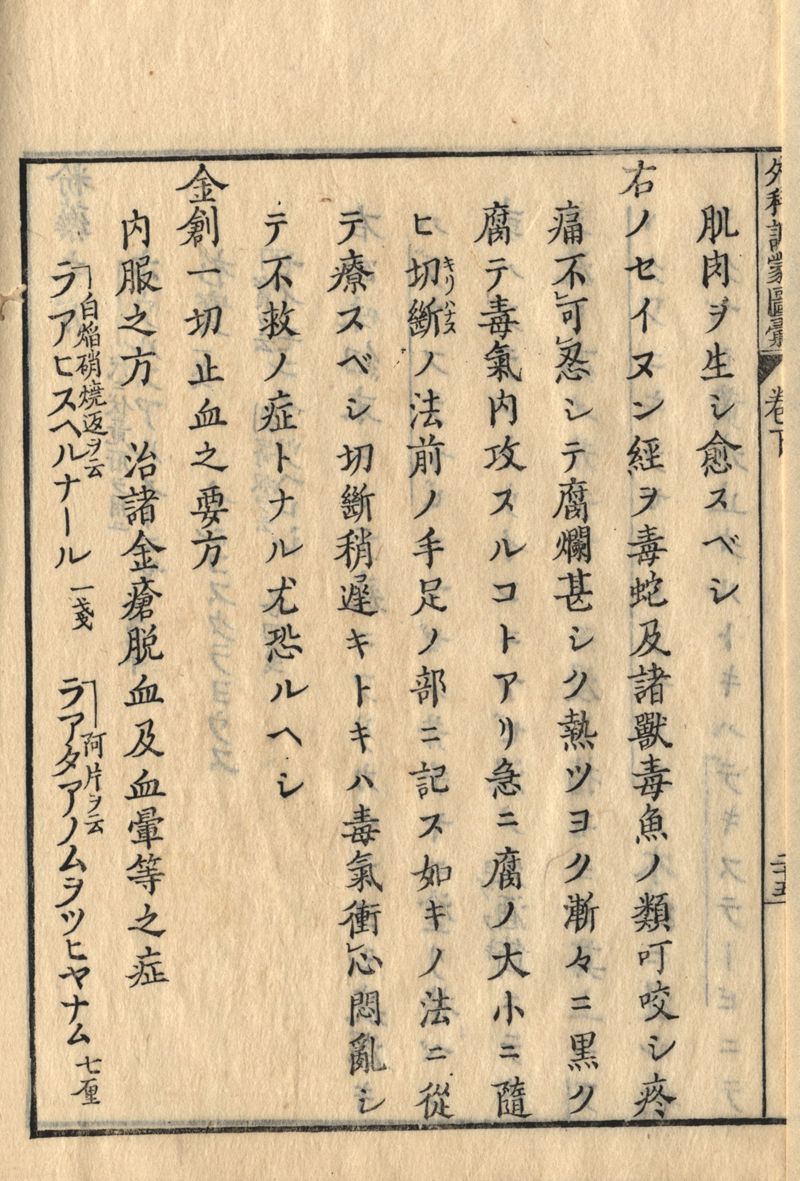 外科訓蒙圖彙 卷下
二十五
肌肉ヲ生シ愈スベシ
右ノセイヌン經ヲ毒蛇及諸獸毒魚ノ類叮咬シ疼
痛不可忍シテ腐爛甚シク熱ツヨク漸々ニ黒ク
腐テ毒氣内攻スルコトアリ急ニ腐ノ大小ニ隨
ヒ切斷ノ法前ノ手足ノ部ニ記ス如キノ法ニ從
キリハナス
テ療スベシ切斷稍遅キトキハ毒氣衝心悶亂シ
テ不救ノ症トナル尤恐ルヘシ
金創一切止血之要方
内服之方 治諸金瘡脱血及血暈等之症
白焔硝燒返ヲ云
ラアヒスヘルナール 一戔
阿片ヲ云
ラアタアノムヲツヒヤナム 七厘